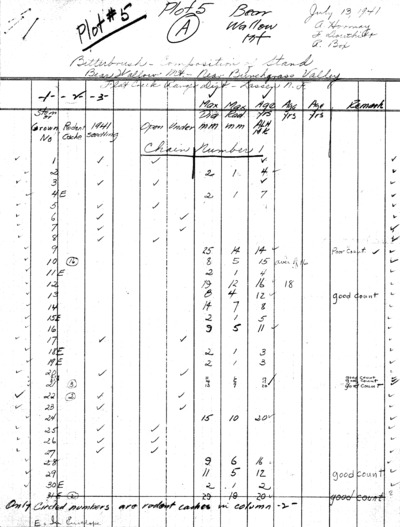 Plot #5
Plot 5
Bear
Wallow
Mt
July 13, 1941
A
A. Hormay
P. Box
Bitterbrush - Composition of Stand
Bear Wallow Mt - Near Bunchgrass Valley
Hat Creek Ranger Dist - Lassen N.F.
-1- -2- -3-
Stem or Crown No Rodent Cache 1941 seedling Open Under Max Dia mm Max Rad mm Age yrs Age yrs Age yrs Remark
Chain Number 1
1 ✓ ✓
2 2 1 4
3 ✓ ✓
4E 2 1 7
5 ✓ ✓
6 ✓ ✓
7 ✓ ✓
8 ✓ ✓
9 25 14 14 Poor count
10 (16) 8 5 15
11E 2 1 4
12 19 12 16 18
13 8 4 12 good count
14 14 7 8
15E 2 1 5
16 9 5 11
17 ✓ ✓
18E 2 1 3
19E 2 1 3
20 ✓ ✓
21 (3) good count
22 (2) ✓ ✓
23 ✓ ✓
24 15 10 20
25 ✓ ✓
26 ✓ ✓
27 ✓ ✓
28 9 6 16
29 11 5 12 good count
30E 2 1 2
31E 29 18 20 good count
Only Circled numbers are rodent caches in column -2-
E. In Envelope